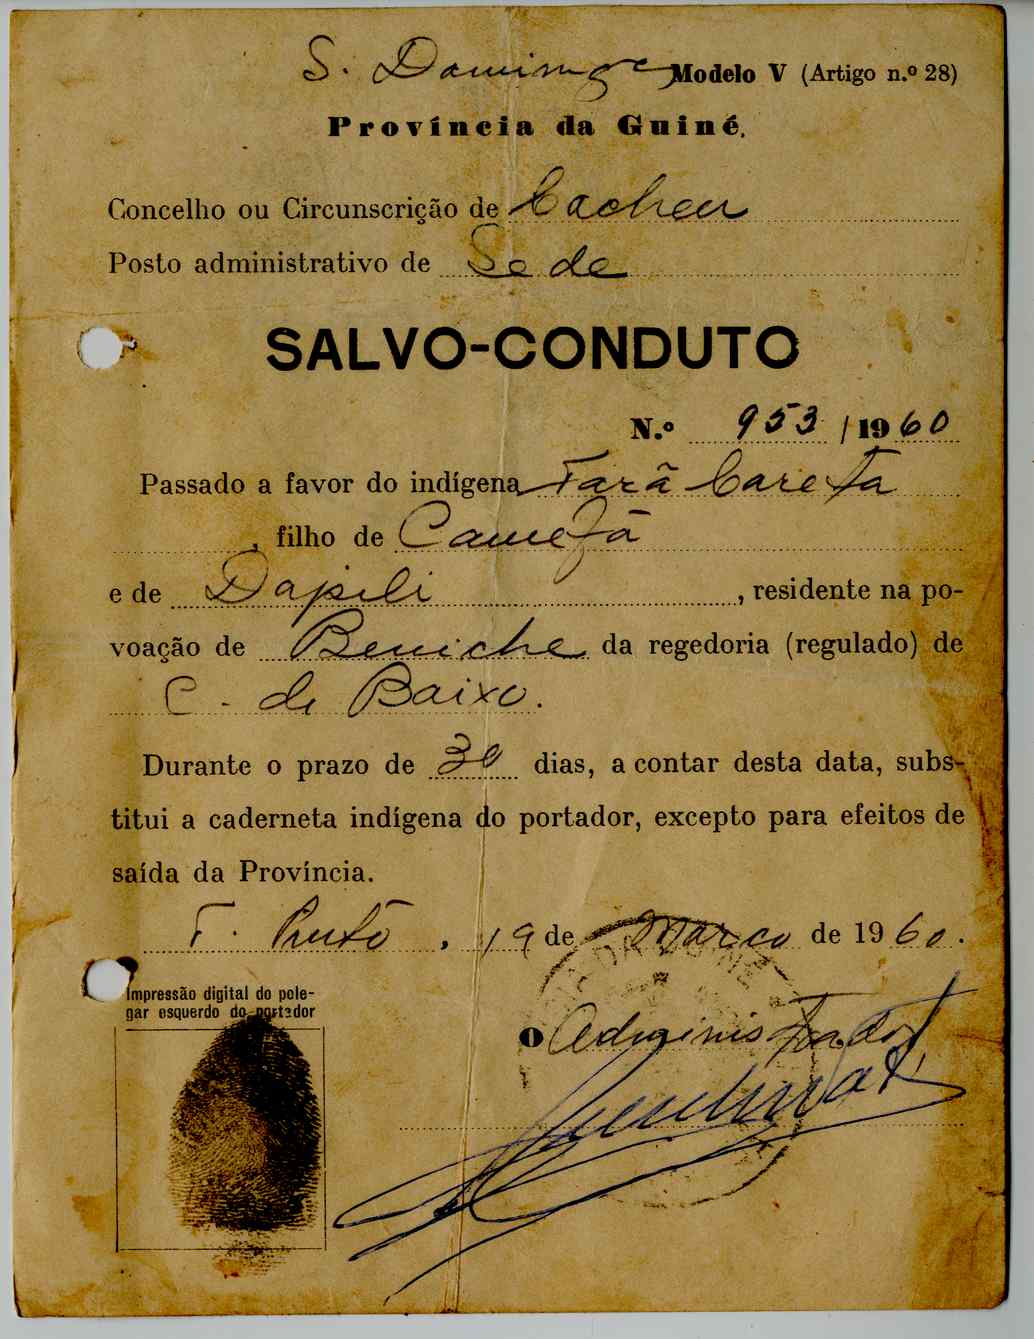 S. Domingos Modelo V (Artigo n.º 28)
Província da Guiné.
Concelho ou Circunscrição de Cacheu
Posto administrativo de Sede
SALVO-CONDUTO
N.º 953 / 1960
Passado a favor do indígena Farã Carefa
, filho de Camefã
e de Dapili , residente na po-
voação de Beniche da regedoria (regulado) de
C. de Baixo.
Durante o prazo de 30 dias, a contar desta data, subs-
titui a caderneta indígena do portador, excepto para efeitos de
saída da Província.
T. Pinto , 19 de Março de 1960.
Impressão digital do pole-
gar esquerdo do portador
DA GUINÉ
O Administrador